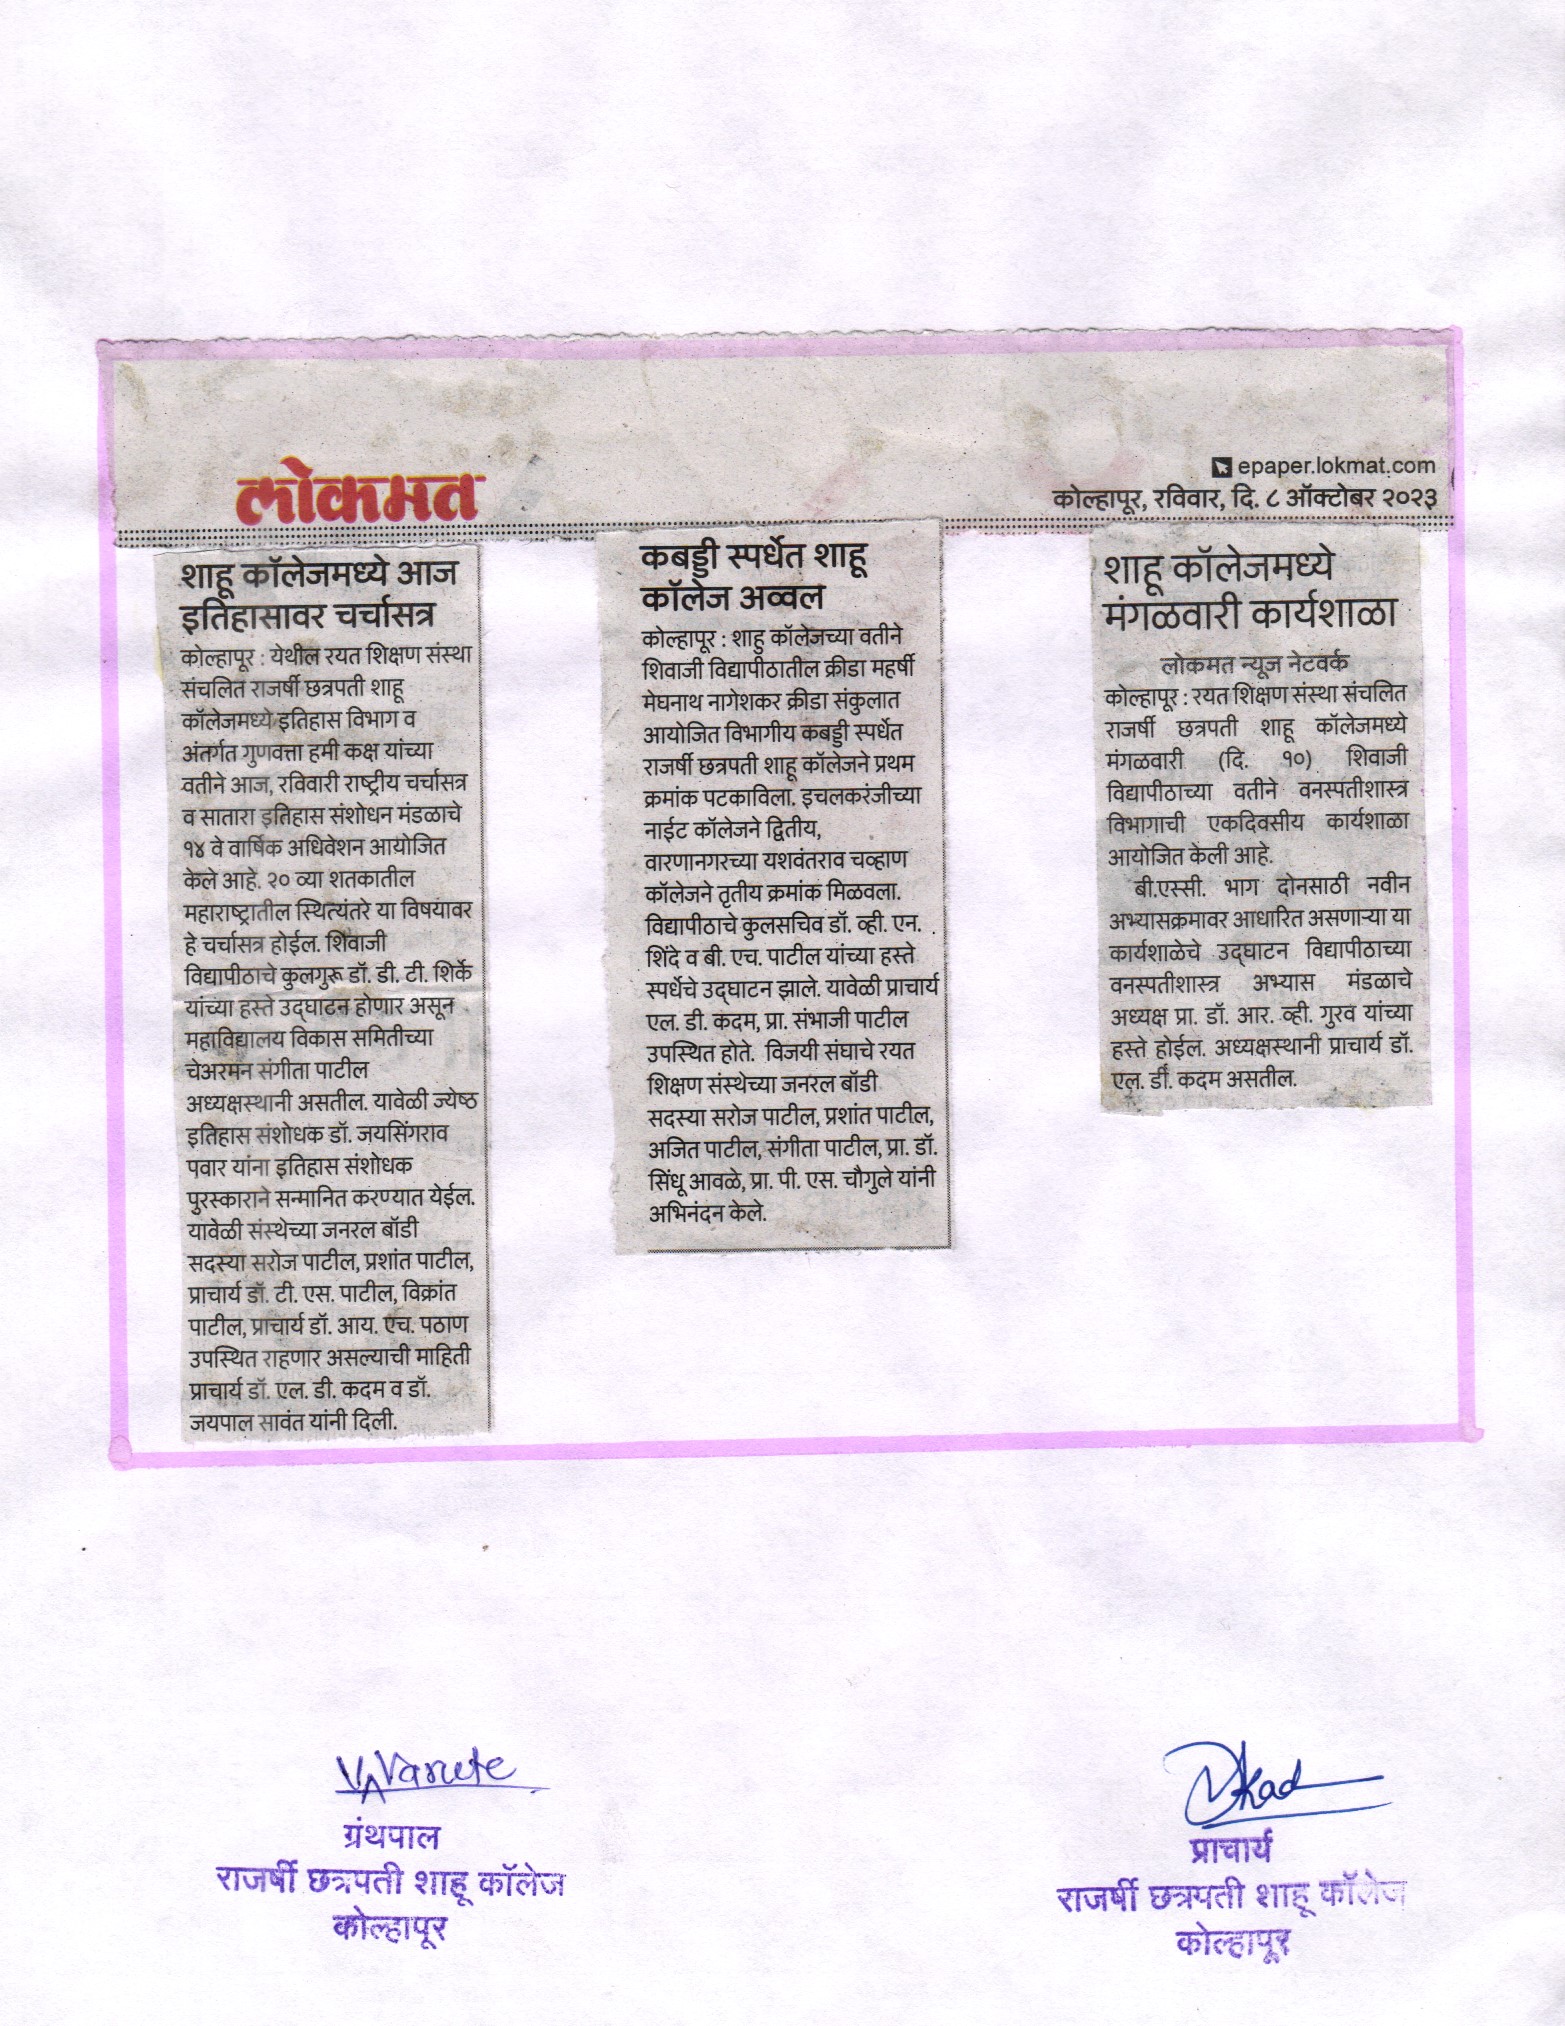 लोकमत
epaper.lokmat.com
कोल्हापूर, रविवार, दि. ८ ऑक्टोबर २०२३
शाहू कॉलेजमध्ये आज
इतिहासावर चर्चासत्र
कोल्हापूर : येथील रयत शिक्षण संस्था
संचलित राजर्षी छत्रपती शाहू
कॉलेजमध्ये इतिहास विभाग व
अंतर्गत गुणवत्ता हमी कक्ष यांच्या
वतीने आज, रविवारी राष्ट्रीय चर्चासत्र
व सातारा इतिहास संशोधन मंडळाचे
१४ वे वार्षिक अधिवेशन आयोजित
केले आहे. २० व्या शतकातील
महाराष्ट्रातील स्थित्यंतरे या विषयावर
हे चर्चासत्र होईल. शिवाजी
विद्यापीठाचे कुलगुरू डॉ. डी. टी. शिर्के
यांच्या हस्ते उद्‌घाटन होणार असून
महाविद्यालय विकास समितीच्या
चेअरमन संगीता पाटील
अध्यक्षस्थानी असतील. यावेळी ज्येष्ठ
इतिहास संशोधक डॉ. जयसिंगराव
पवार यांना इतिहास संशोधक
पुरस्काराने सन्मानित करण्यात येईल.
यावेळी संस्थेच्या जनरल बॉडी
सदस्या सरोज पाटील, प्रशांत पाटील,
प्राचार्य डॉ. टी. एस. पाटील, विक्रांत
पाटील, प्राचार्य डॉ. आय. एच. पठाण
उपस्थित राहणार असल्याची माहिती
प्राचार्य डॉ. एल. डी. कदम व डॉ.
जयपाल सावंत यांनी दिली.
कबड्डी स्पर्धेत शाहू
कॉलेज अव्वल
कोल्हापूर : शाहु कॉलेजच्या वतीने
शिवाजी विद्यापीठातील क्रीडा महर्षी
मेघनाथ नागेशकर क्रीडा संकुलात
आयोजित विभागीय कबड्डी स्पर्धेत
राजर्षी छत्रपती शाहू कॉलेजने प्रथम
क्रमांक पटकाविला. इचलकरंजीच्या
नाईट कॉलेजने द्वितीय,
वारणानगरच्या यशवंतराव चव्हाण
कॉलेजने तृतीय क्रमांक मिळवला.
विद्यापीठाचे कुलसचिव डॉ. व्ही. एन.
शिंदे व बी. एच. पाटील यांच्या हस्ते
स्पर्धेचे उद्‌घाटन झाले. यावेळी प्राचार्य
एल. डी. कदम, प्रा. संभाजी पाटील
उपस्थित होते. विजयी संघाचे रयत
शिक्षण संस्थेच्या जनरल बॉडी
सदस्या सरोज पाटील, प्रशांत पाटील,
अजित पाटील, संगीता पाटील, प्रा. डॉ.
सिंधू आवळे, प्रा. पी. एस. चौगुले यांनी
अभिनंदन केले.
शाहू कॉलेजमध्ये
मंगळवारी कार्यशाळा
लोकमत न्यूज नेटवर्क
कोल्हापूर : रयत शिक्षण संस्था संचलित
राजर्षी छत्रपती शाहू कॉलेजमध्ये
मंगळवारी (दि. १०) शिवाजी
विद्यापीठाच्या वतीने वनस्पतीशास्त्र
विभागाची एकदिवसीय कार्यशाळा
आयोजित केली आहे.
बी.एस्सी. भाग दोनसाठी नवीन
अभ्यासक्रमावर आधारित असणाऱ्या या
कार्यशाळेचे उद्‌घाटन विद्यापीठाच्या
वनस्पतीशास्त्र अभ्यास मंडळाचे
अध्यक्ष प्रा. डॉ. आर. व्ही. गुरव यांच्या
हस्ते होईल. अध्यक्षस्थानी प्राचार्य डॉ.
एल. डी. कदम असतील.
ग्रंथपाल
राजर्षी छत्रपती शाहू कॉलेज
कोल्हापूर
प्राचार्य
राजर्षी छत्रपती शाहू कॉलेज
कोल्हापूर